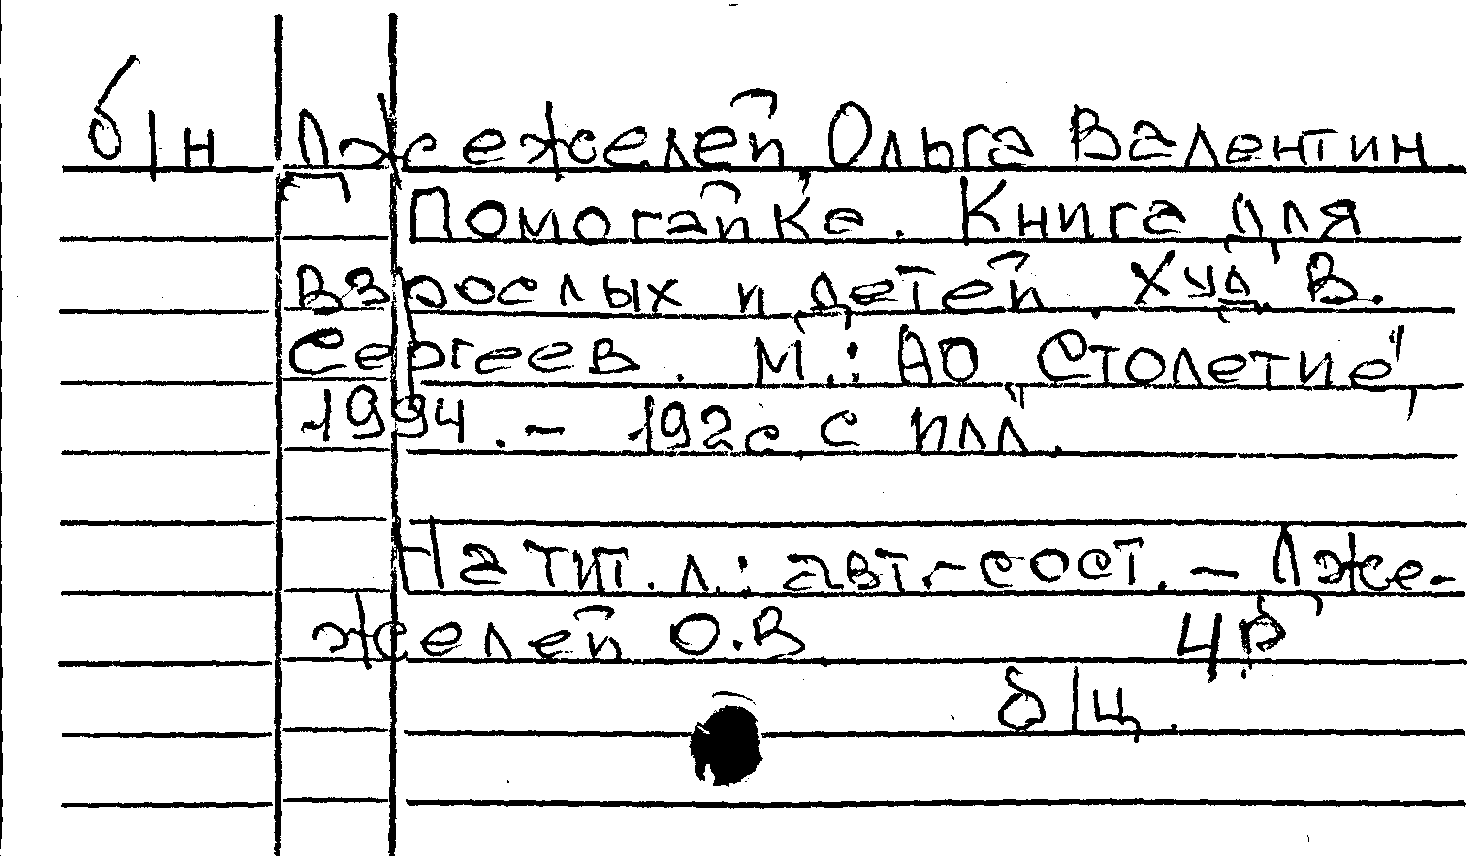 б/н Джежелей Ольга Валентин.
Помогайка. Книга для
взрослых и детей. Худ. В.
Сергеев. М.: АО „Столетие",
1994. - 192с с илл.
На тит. л.: авт.-сост. - Дже-
желей О.В. 4Р
б/ц.